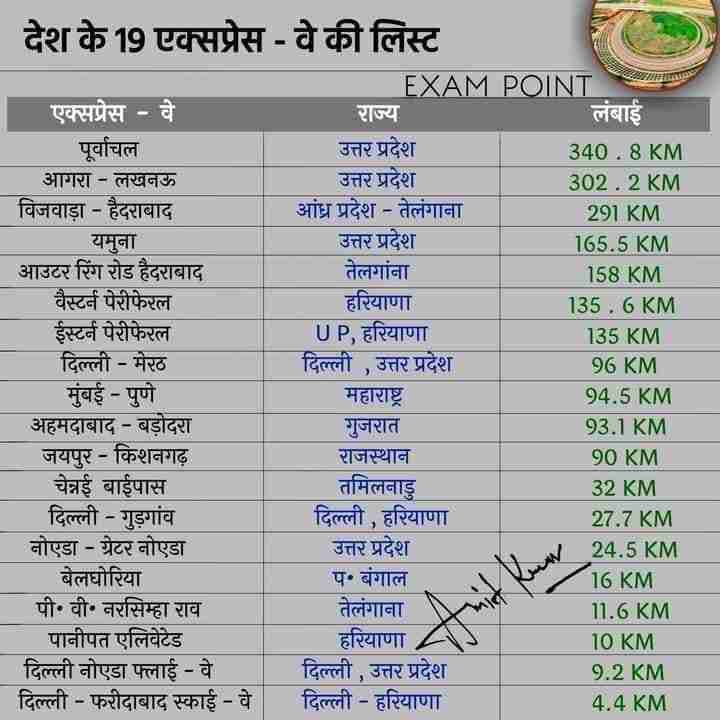 देश के 19 एक्सप्रेस - वे की लिस्ट
EXAM POINT
एक्सप्रेस - वे राज्य लंबाई
पूर्वाचल उत्तर प्रदेश 340 . 8 KM
आगरा - लखनऊ उत्तर प्रदेश 302 . 2 KM
विजवाड़ा - हैदराबाद आंध्र प्रदेश - तेलंगाना 291 KM
यमुना उत्तर प्रदेश 165.5 KM
आउटर रिंग रोड हैदराबाद तेलगांना 158 KM
वैस्टर्न पेरीफेरल हरियाणा 135 . 6 KM
ईस्टर्न पेरीफेरल U P, हरियाणा 135 KM
दिल्ली - मेरठ दिल्ली , उत्तर प्रदेश 96 KM
मुंबई - पुणे महाराष्ट्र 94.5 KM
अहमदाबाद - बड़ोदरा गुजरात 93.1 KM
जयपुर - किशनगढ़ राजस्थान 90 KM
चेन्नई बाईपास तमिलनाडु 32 KM
दिल्ली - गुड़गांव दिल्ली , हरियाणा 27.7 KM
नोएडा - ग्रेटर नोएडा उत्तर प्रदेश 24.5 KM
बेलघोरिया प• बंगाल 16 KM
पी• वी• नरसिम्हा राव तेलंगाना 11.6 KM
Amit Kumar
पानीपत एलिवेटेड हरियाणा 10 KM
दिल्ली नोएडा फ्लाई - वे दिल्ली , उत्तर प्रदेश 9.2 KM
दिल्ली - फरीदाबाद स्काई - वे दिल्ली - हरियाणा 4.4 KM